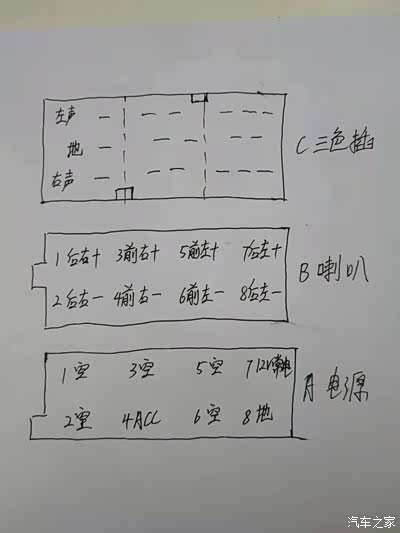 左声
地
右声
C 三色插
1后右+ 3前右+ 5前左+ 7后左+
2后右- 4前右- 6前左- 8后左-
B 喇叭
1空 3空 5空 7 12V常电
2空 4ACC 6空 8地
A 电源
汽车之家